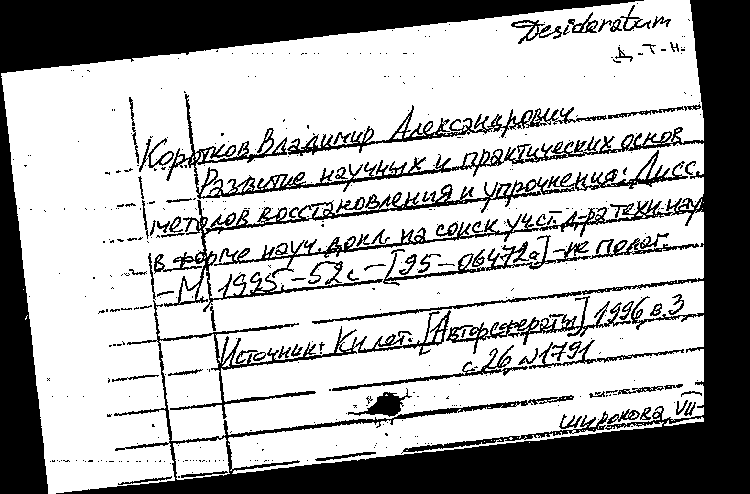 Desideratum
д-т-н.
Коротков, Владимир Александрович
Развитие научных и практических основ
методов восстановления и упрочнения: Дисс.
в форме науч. докл. на соиск уч. ст. д-ра техн. нау
-М, 1995.-52с.-[95-06472а]-не полаг.
Источник: Кн лет. [Авторефераты], 1996, в.3,
с.26, №1791
Широкова, VII-